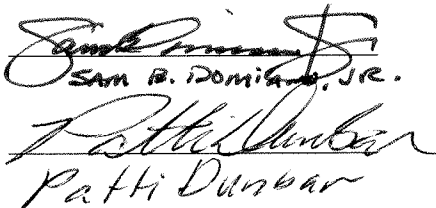 SAM B. DOMIANO, JR.
Patti Dunbar
Patti Dunbar